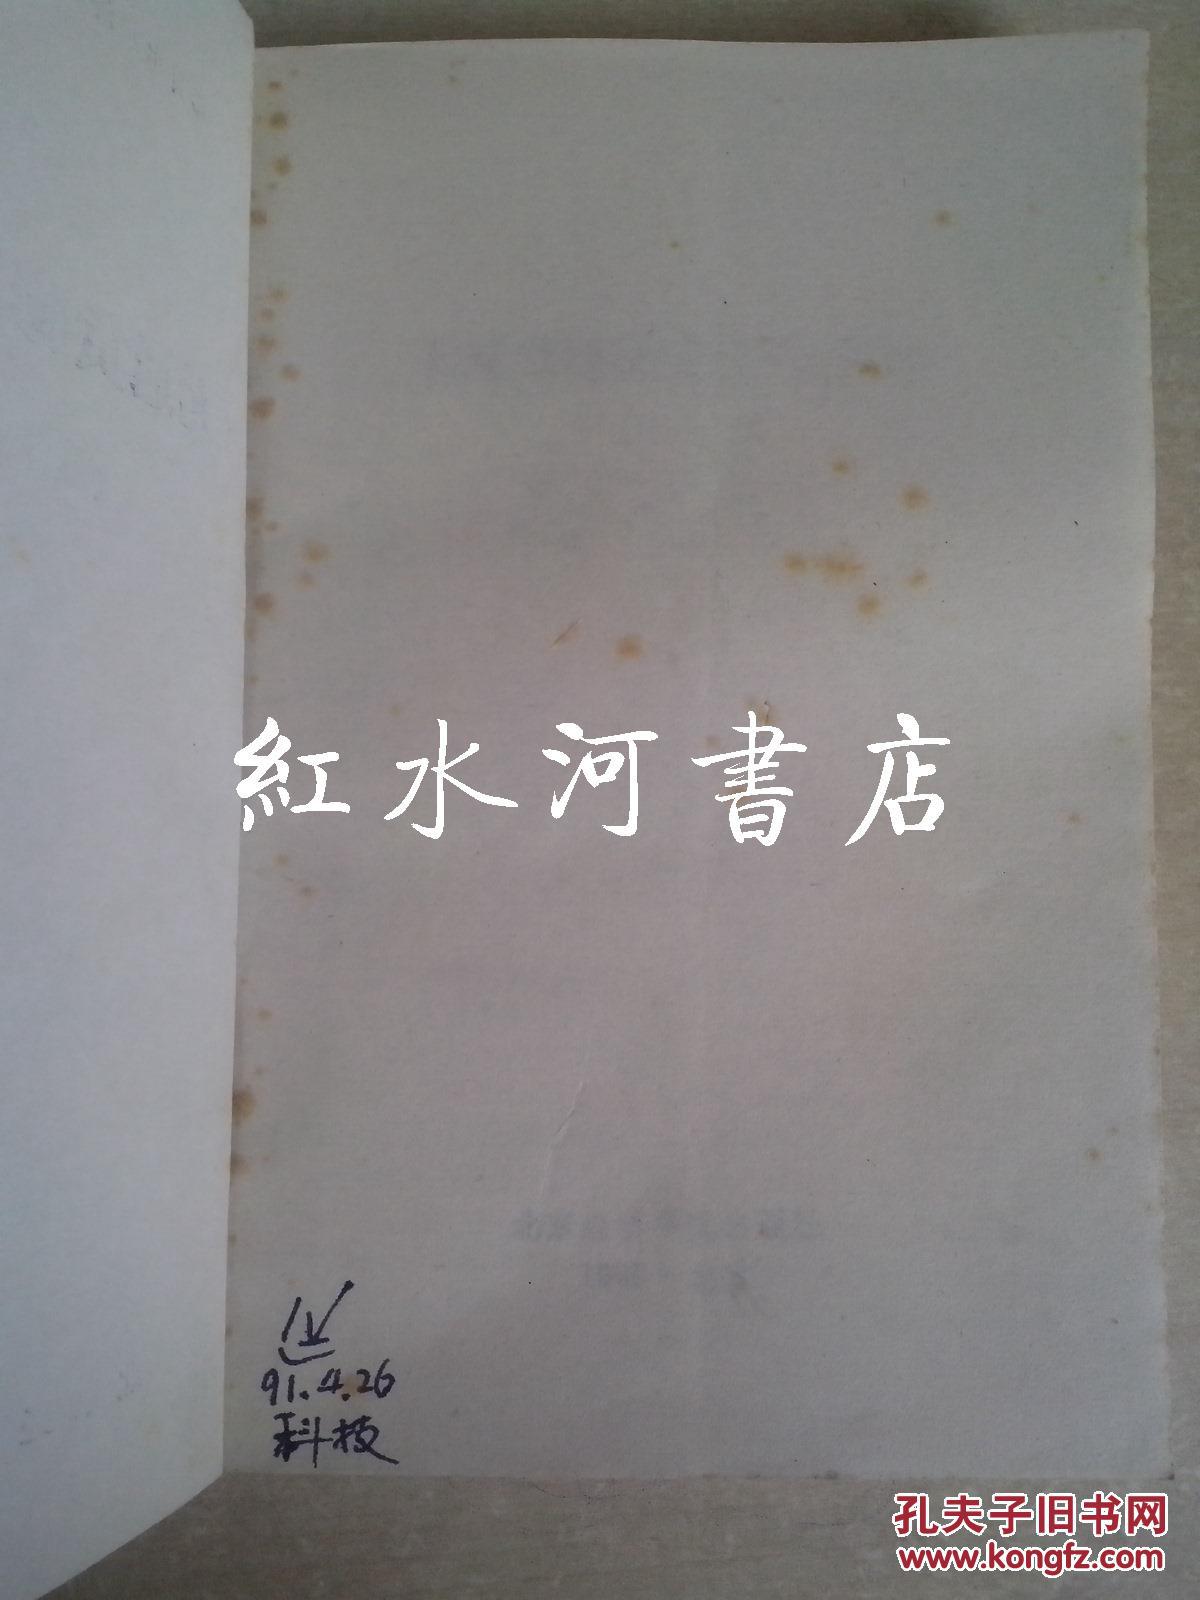 紅水河書店
91.4.26
科技
孔夫子旧书网
www.kongfz.com